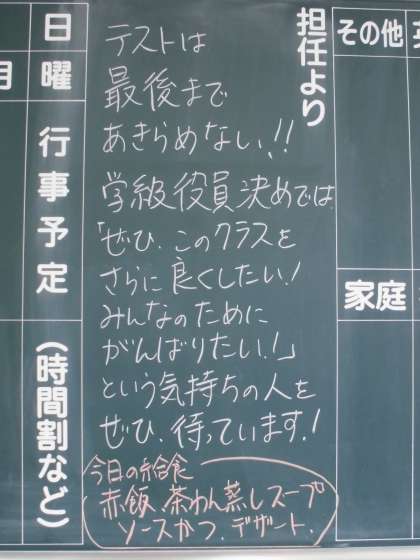 日
曜
行事予定
（時間割など）
月
担任より
テストは
最後まで
あきらめない!!
学級役員決めでは
「ぜひ、このクラスを
さらに良くしたい!
みんなのために
がんばりたい!」
という気持ちの人を
ぜひ、待っています!
今日の給食
赤飯、茶わん蒸しスープ
ソースかつ、デザート、
その他
家庭